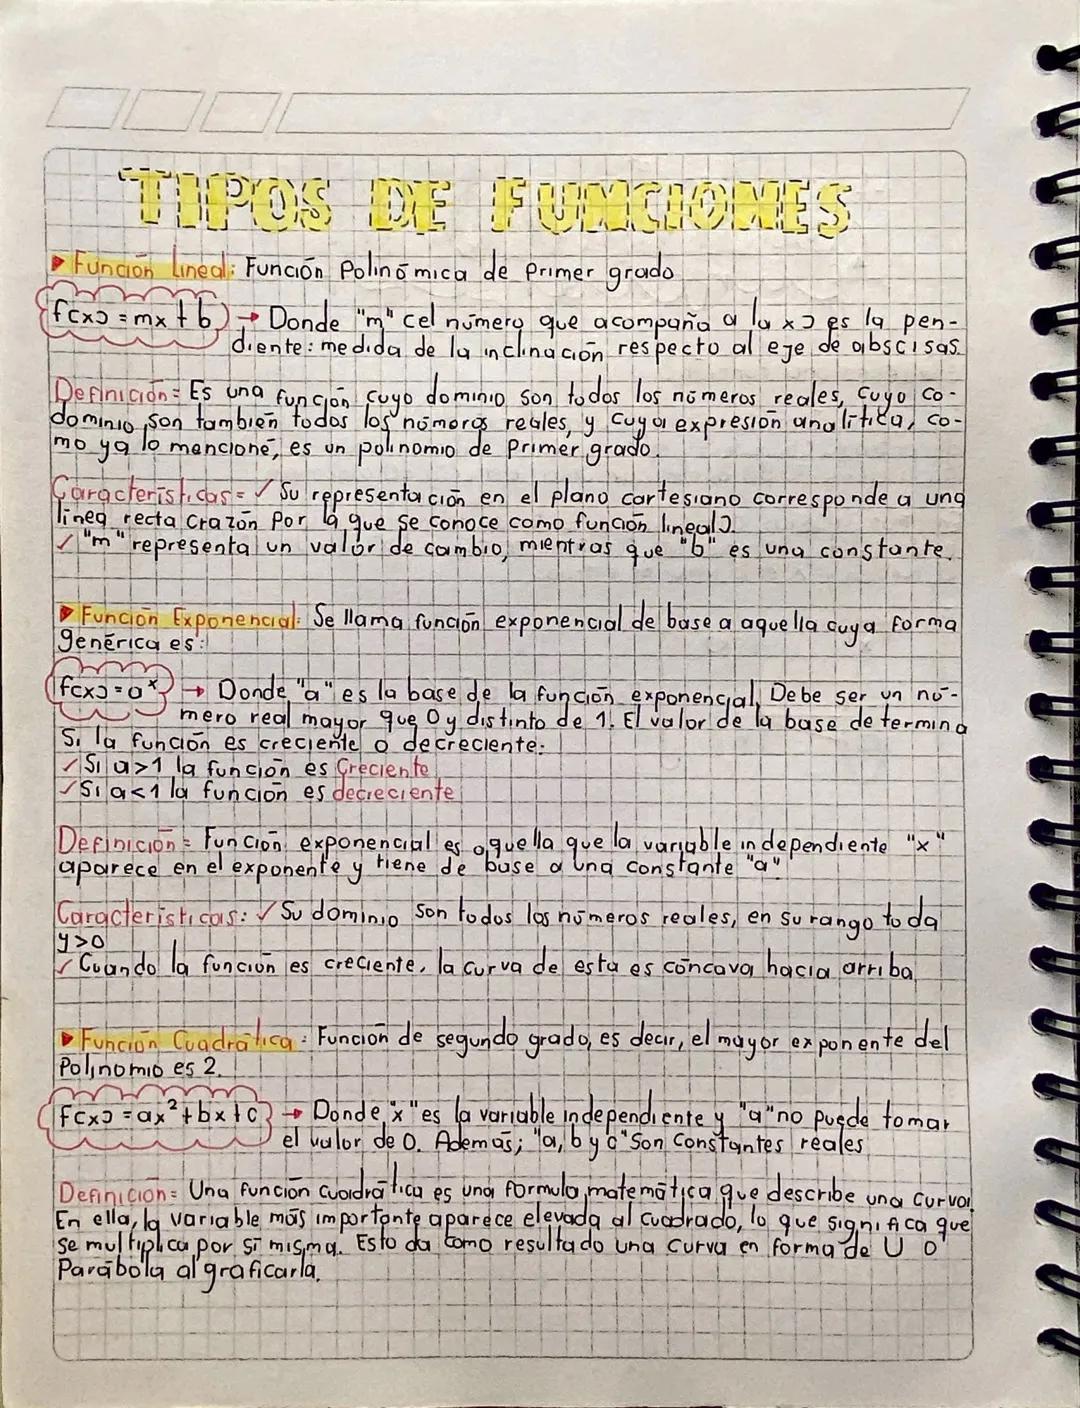 TIPOS DE FUNCIONES
Función Lineal: Función Polinómica de Primer grado
f(x) = mx + b → Donde "m" (el número que acompaña a la x) es la pen-
diente: medida de la inclinación respecto al eje de abscisas.
Definición = Es una función cuyo dominio son todos los números reales, cuyo co-
dominio son también todos los números reales, y cuya expresión analítica, co-
mo ya lo mencioné, es un polinomio de Primer grado.
Características = ✓ Su representación en el plano cartesiano corresponde a una
línea recta (razón por la que se conoce como función lineal).
✓ "m" representa un valor de cambio, mientras que "b" es una constante.
Función Exponencial: Se llama función exponencial de base a aquella cuya forma
genérica es:
f(x) = a^x → Donde "a" es la base de la función exponencial. Debe ser un nú-
mero real mayor que 0 y distinto de 1. El valor de la base determina
Si la función es creciente o decreciente:
✓ Si a>1 la función es Creciente
✓ Si a<1 la función es decreciente
Definición = Función exponencial es aquella que la variable independiente "x"
aparece en el exponente y tiene de base a una constante "a"
Características: ✓ Su dominio son todos los números reales, en su rango toda
y>0
✓ Cuando la función es creciente, la curva de esta es cóncava hacia arriba
Función Cuadrática: Función de segundo grado, es decir, el mayor exponente del
Polinomio es 2.
f(x) = ax² + bx + c → Donde "x" es la variable independiente y "a" no puede tomar
el valor de 0. Además; "a, b y c" Son Constantes reales
Definición = Una función cuadrática es una formula matemática que describe una curva.
En ella, la variable más importante aparece elevada al cuadrado, lo que significa que
se multiplica por sí misma. Esto da como resultado una curva en forma de U o
Parábola al graficarla.